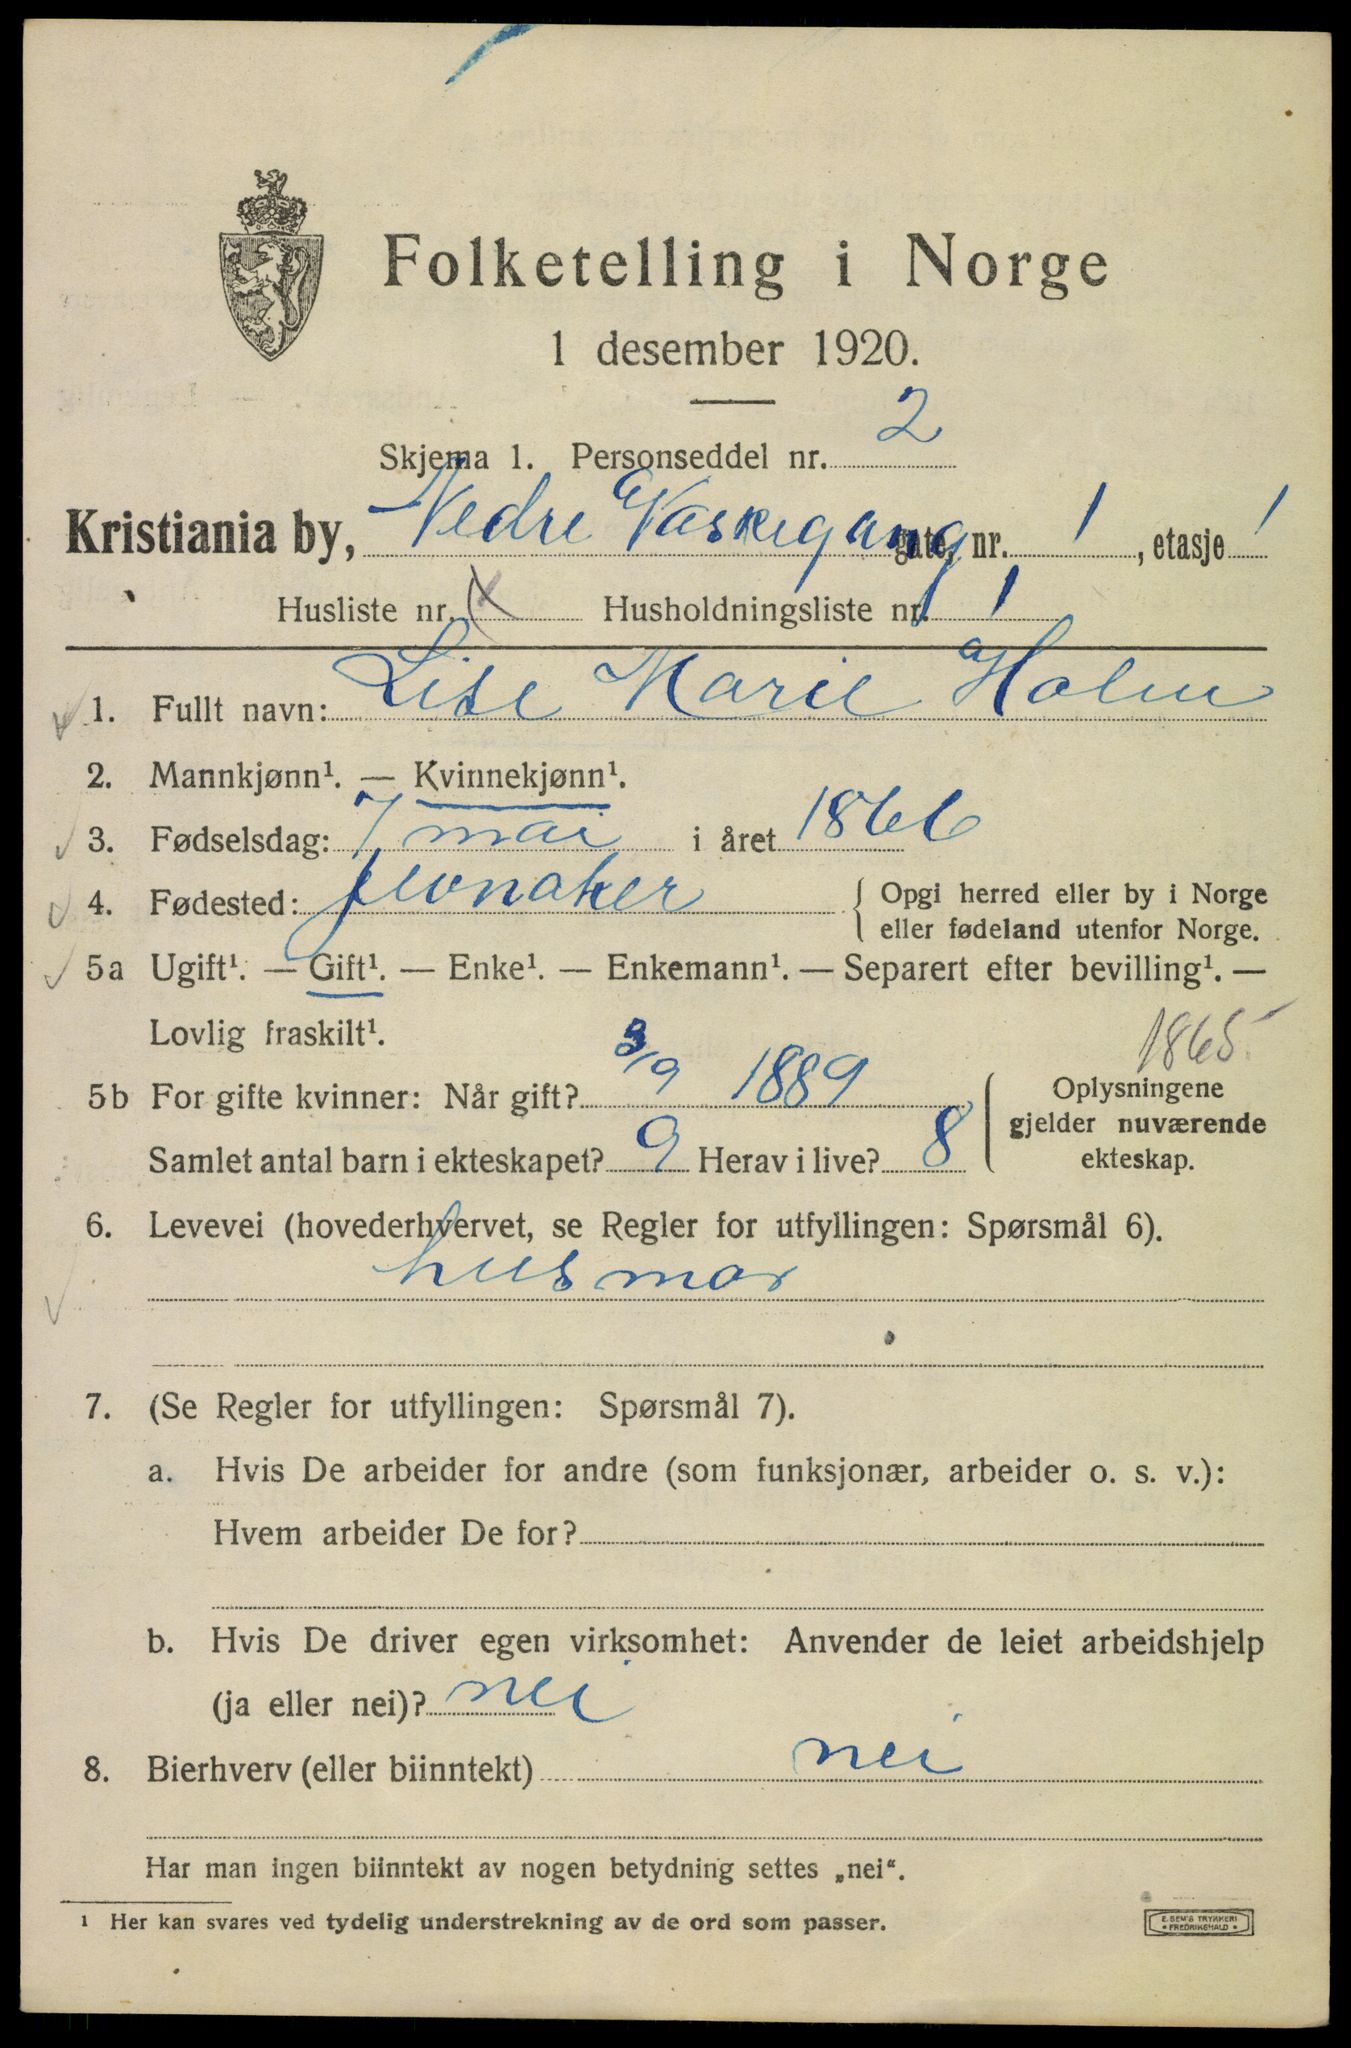 Folketelling i Norge
1 desember 1920.
Skjema 1. Personseddel nr. 2
Kristiania by, Nedre Vaskegang gate, nr. 1, etasje 1
Husliste nr. Husholdningsliste nr. 1
1. Fullt navn: Lise Marie Holm
2. Mannkjønn¹. — Kvinnekjønn¹.
3. Fødselsdag: 7 mai i året 1866
4. Fødested: Jevnaker { Opgi herred eller by i Norge
eller fødeland utenfor Norge.
5a Ugift¹. — Gift¹. — Enke¹. — Enkemann¹. — Separert efter bevilling¹. —
Lovlig fraskilt¹.
1865
5b For gifte kvinner: Når gift? 3/9 1889 Oplysningene
gjelder nuværende
Samlet antal barn i ekteskapet? 9 Herav i live? 8 ekteskap.
6. Levevei (hovederhvervet, se Regler for utfyllingen: Spørsmål 6).
husmor
7. (Se Regler for utfyllingen: Spørsmål 7).
a. Hvis De arbeider for andre (som funksjonær, arbeider o. s. v.):
Hvem arbeider De for?
b. Hvis De driver egen virksomhet: Anvender de leiet arbeidshjelp
(ja eller nei)? nei
8. Bierhverv (eller biinntekt) nei
Har man ingen biinntekt av nogen betydning settes „nei“.
¹ Her kan svares ved tydelig understrekning av de ord som passer.
E. SEM'S TRYKKERI
• FREDRIKSHALD •